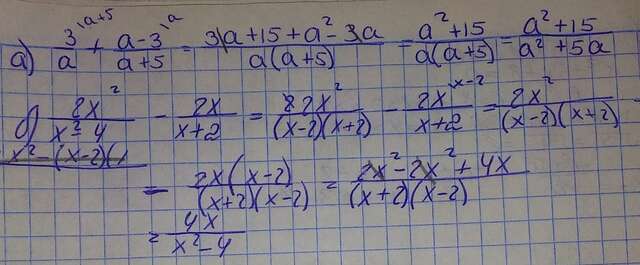 а) 3^{\a+5}/a + a-3^{\a}/a+5 = 3a+15+a²-3a/a(a+5) = a²+15/a(a+5) = a²+15/a²+5a
б) 2x²/x²-4 - 2x/x+2 = 2x²/(x-2)(x+2) - 2x^{\x-2}/x+2 = 2x²/(x-2)(x+2) -
x²-(x-2)(
= 2x(x-2)/(x+2)(x-2) = 2x²-2x²+4x/(x+2)(x-2)
= 4x/x²-4